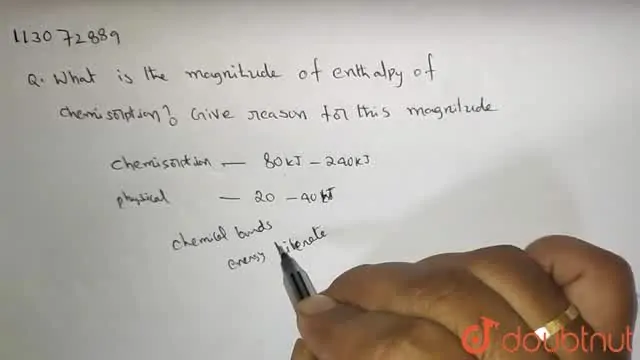 1130 72889
Q. What is the magnitude of enthalpy of
chemisorption? Give reason for this magnitude
chemisorption — 80KJ - 240KJ
physical — 20 - 40KJ
chemical bonds
energy liberate
doubtnut